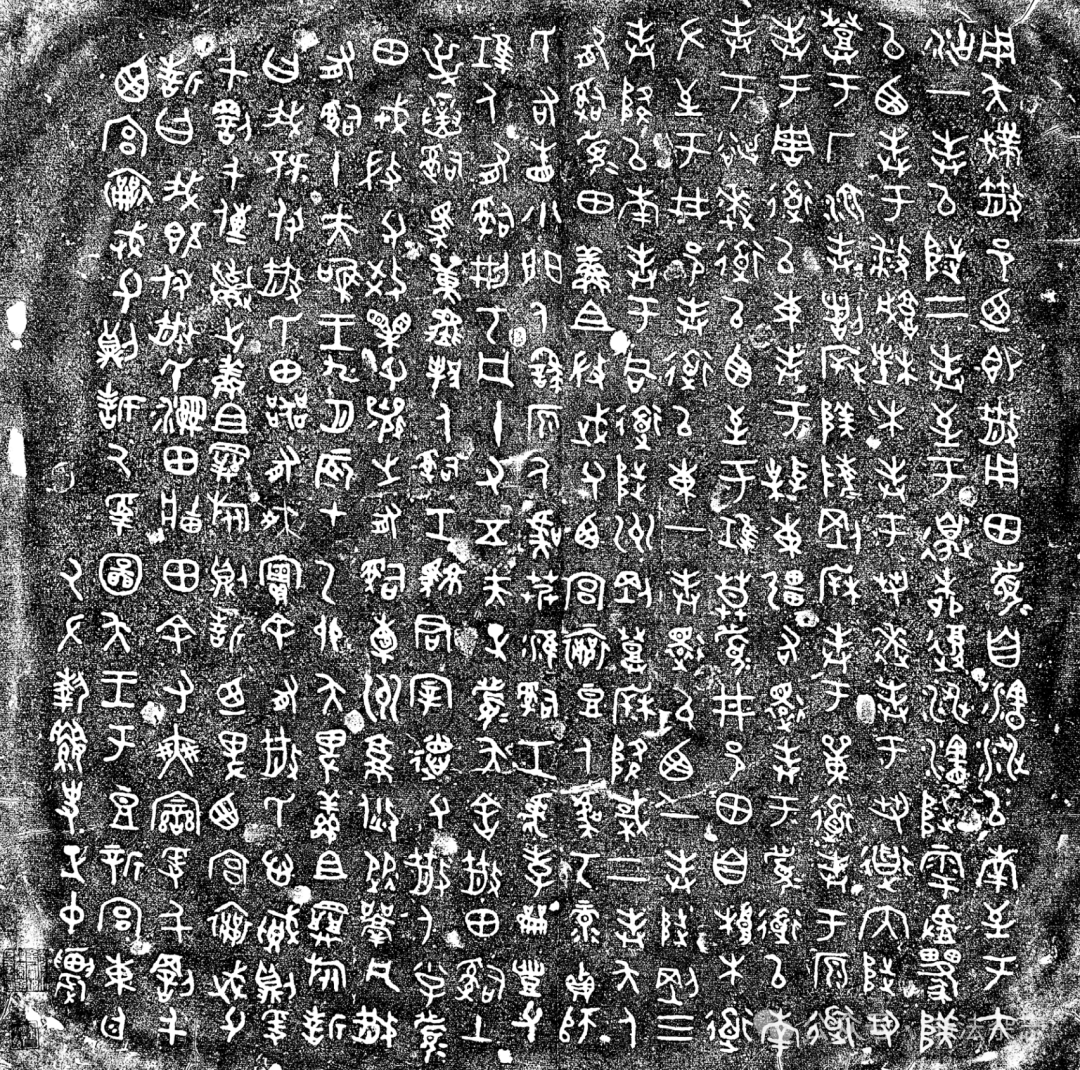 用夨撲散邑廼即散用田眉自瀗涉以南至于大
沽一奉以陟二奉至于邊柳復涉瀗陟雩𠭯邍陕
以西奉于敝城楮木奉于芻逨奉于芻道內陟芻
登于厂湶奉割柝陕陵剛柝奉于道奉于原道
奉于周道以東奉于東疆右還奉于眉道以南
奉于逨道以西至于堆莫眉井邑田自根木道
左至于井邑奉道以東一奉還以西一奉陟剛三
奉降以南奉于同道陟州剛登柝降棫二奉夨人
有司眉田鮮且微武父西宮襄豆人虞丂彔貞師
氏右眚小門人譌原人虞艿淮司工虎孝龠豐父
堆人有司刑丂凡十又五夫正眉夨舍散田司土
屰寅司馬人司工駷君宰德父散人小子眉
田戎微父效父襄之有司橐州焂從凡散
有司十夫唯王九月辰才乙卯夨卑鮮且旅誓
曰我既付散氏田器有爽實余有散氏心賊則爰
千罰千傳棄之鮮且旅則誓廼卑西宮襄武父
誓曰我既付散氏濕田牆田余又爽䜌爰千罰千
西宮襄武父則誓厥受圖夨王于豆新宮東廷
厥左執史正中農